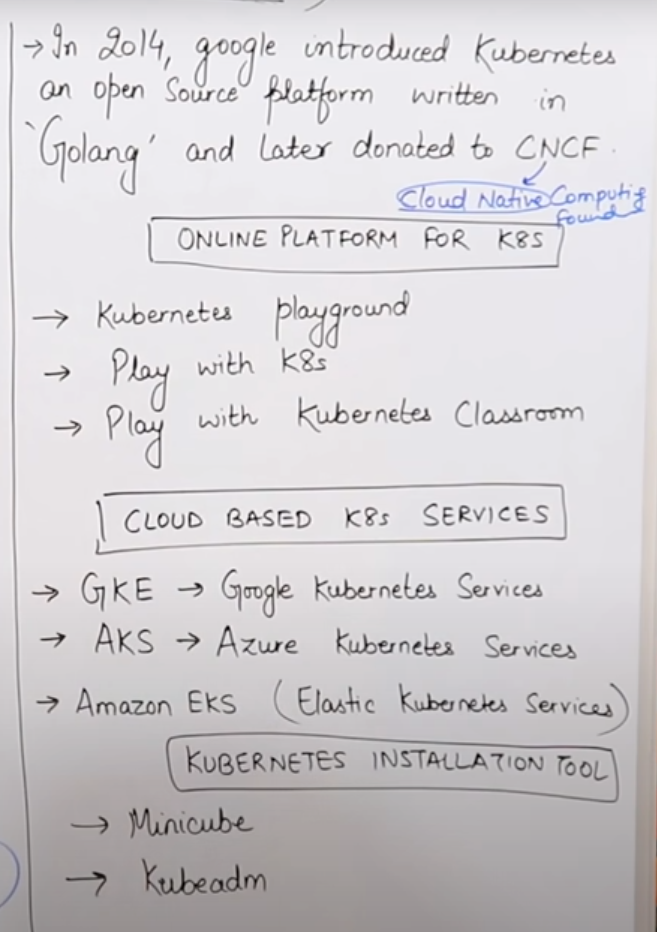 → In 2014, google introduced Kubernetes
an open Source platform written in
'Golang' and Later donated to CNCF.
Cloud Native Computig
found
ONLINE PLATFORM FOR K8S
→ Kubernetes playground
→ Play with K8s
→ Play with Kubernetes Classroom
CLOUD BASED K8s SERVICES
→ GKE → Google Kubernetes Services
→ AKS → Azure Kubernetes Services
→ Amazon EKS (Elastic Kubernetes Services)
KUBERNETES INSTALLATION TOOL
→ Minicube
→ Kubeadm